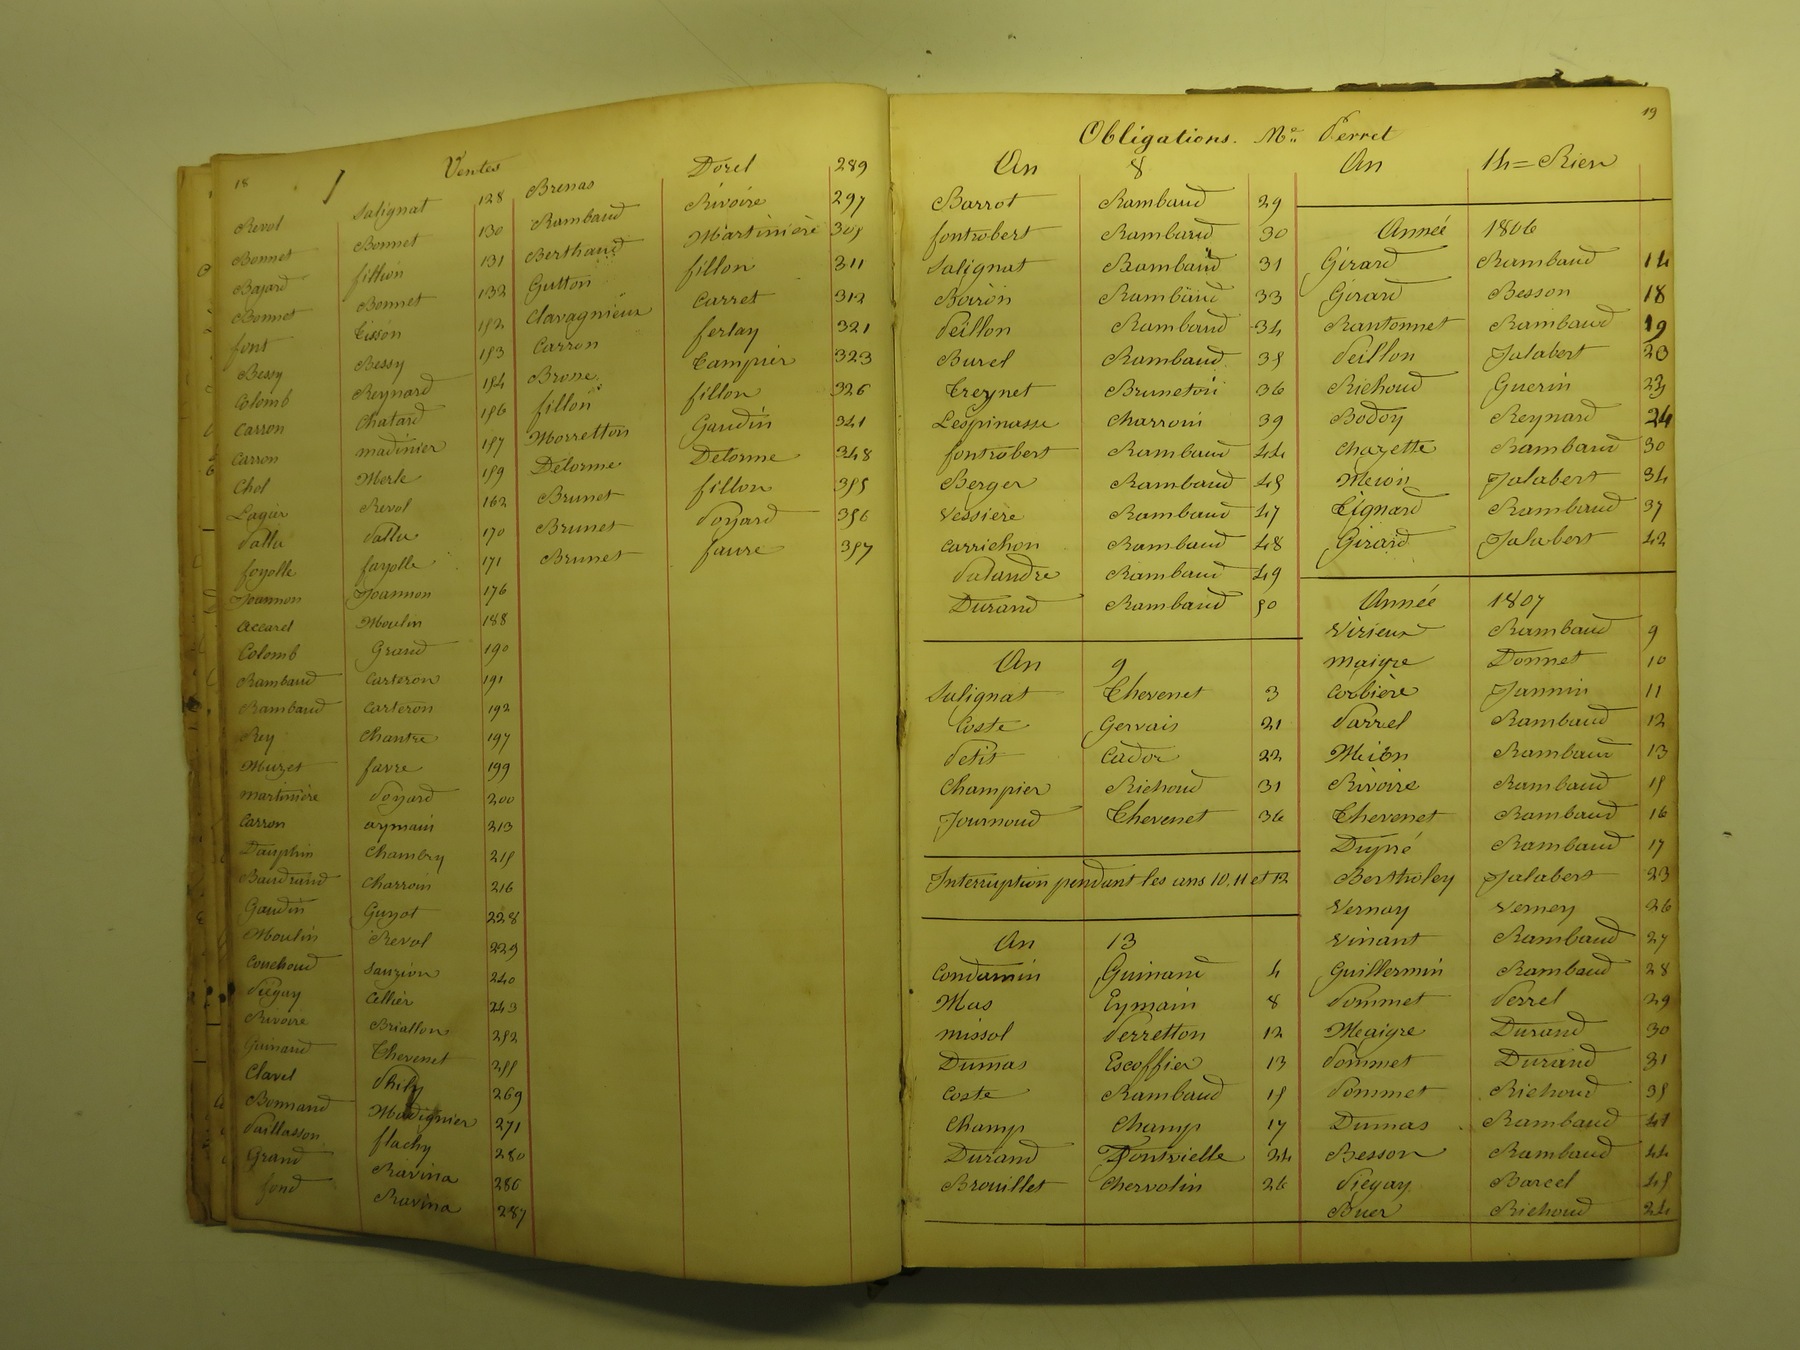 18
Ventes
Revol Salignat 128
Bonnet Bonnet 130
Bajard fillion 131
Bonnet Bonnet 132
font Tisson 152
Bessy Bessy 153
Colomb Reynard 154
Carron Chatard 156
Carron madinier 157
Chol Merle 159
Lagier Revol 162
Pallu Pallu 170
fayolle fayolle 171
Joannon Joannon 176
accarel Moulin 188
Colomb Grand 190
Rambaud Carteron 191
Rambaud Carteron 192
Rey Chantre 197
Muzet favre 199
martinière Poyard 200
Carron aymain 213
Dauphin Chambry 215
Baudrand Charroin 216
Gaudin Guyot 228
Moulin Revol 229
Couchoud Sauzion 240
Piégay Cellier 243
Rivoire Briallon 252
Guinand Thevenet 255
Clavel Phily 269
Bonnand Madignier 271
Paillasson flachy 280
Grand Ravina 286
fond Ravina 287
Brenas Dorel 289
Rambaud Rivoire 297
Berthaud Martinière 305
Gutton fillon 311
Clavagnieux Carret 312
Carron ferlay 321
Brosse Campier 323
fillon fillon 326
Morretton Gaudin 341
Delorme Delorme 348
Brunet fillon 355
Brunet Poyard 356
Brunet faure 357
19
Obligations. Me Perret
An 8
Barrot Rambaud 29
fontrobert Rambaud 30
Salignat Rambaud 31
Boiron Rambaud 33
Peillon Rambaud 34
Burel Rambaud 35
Treynet Bruneton 36
Lespinasse Charroin 39
fontrobert Rambaud 44
Berger Rambaud 45
Vessière Rambaud 47
Carrichon Rambaud 48
Palandre Rambaud 49
Durand Rambaud 50
An 9
Salignat Thevenet 3
Coste Gervais 21
Petit Cador 22
Champier Richoud 31
Journoud Thevenet 36
Interruption pendant les ans 10, 11 et 12
An 13
Condamin Guinand 4
Mas Eymain 8
missol Perretton 12
Dumas Escoffier 13
Coste Rambaud 15
Champ Champ 17
Durand Fontvielle 24
Brouillet Chervolin 26
An 14 = Rien
Année 1806
Girard Rambaud 14
Girard Besson 18
Rantonnet Rambaud 19
Peillon Jalabert 20
Richoud Guerin 23
Bodoy Reynard 24
Chazette Rambaud 30
Meion Jalabert 34
Tignard Rambaud 37
Girard Jalabert 42
Année 1807
Virieux Rambaud 9
maigre Donnet 10
Corbière Jannin 11
Parrel Rambaud 12
Meion Rambaud 13
Rivoire Rambaud 15
Thevenet Rambaud 16
Dupré Rambaud 17
Bertholey Jalabert 23
Vernay Verney 26
Vinant Rambaud 27
Guillermin Rambaud 28
Pommet Perrel 29
Meaigre Durand 30
Pommet Durand 31
Pommet Richoud 35
Dumas Rambaud 41
Besson Rambaud 44
Piégay Barcel 45
Buer Richoud 24